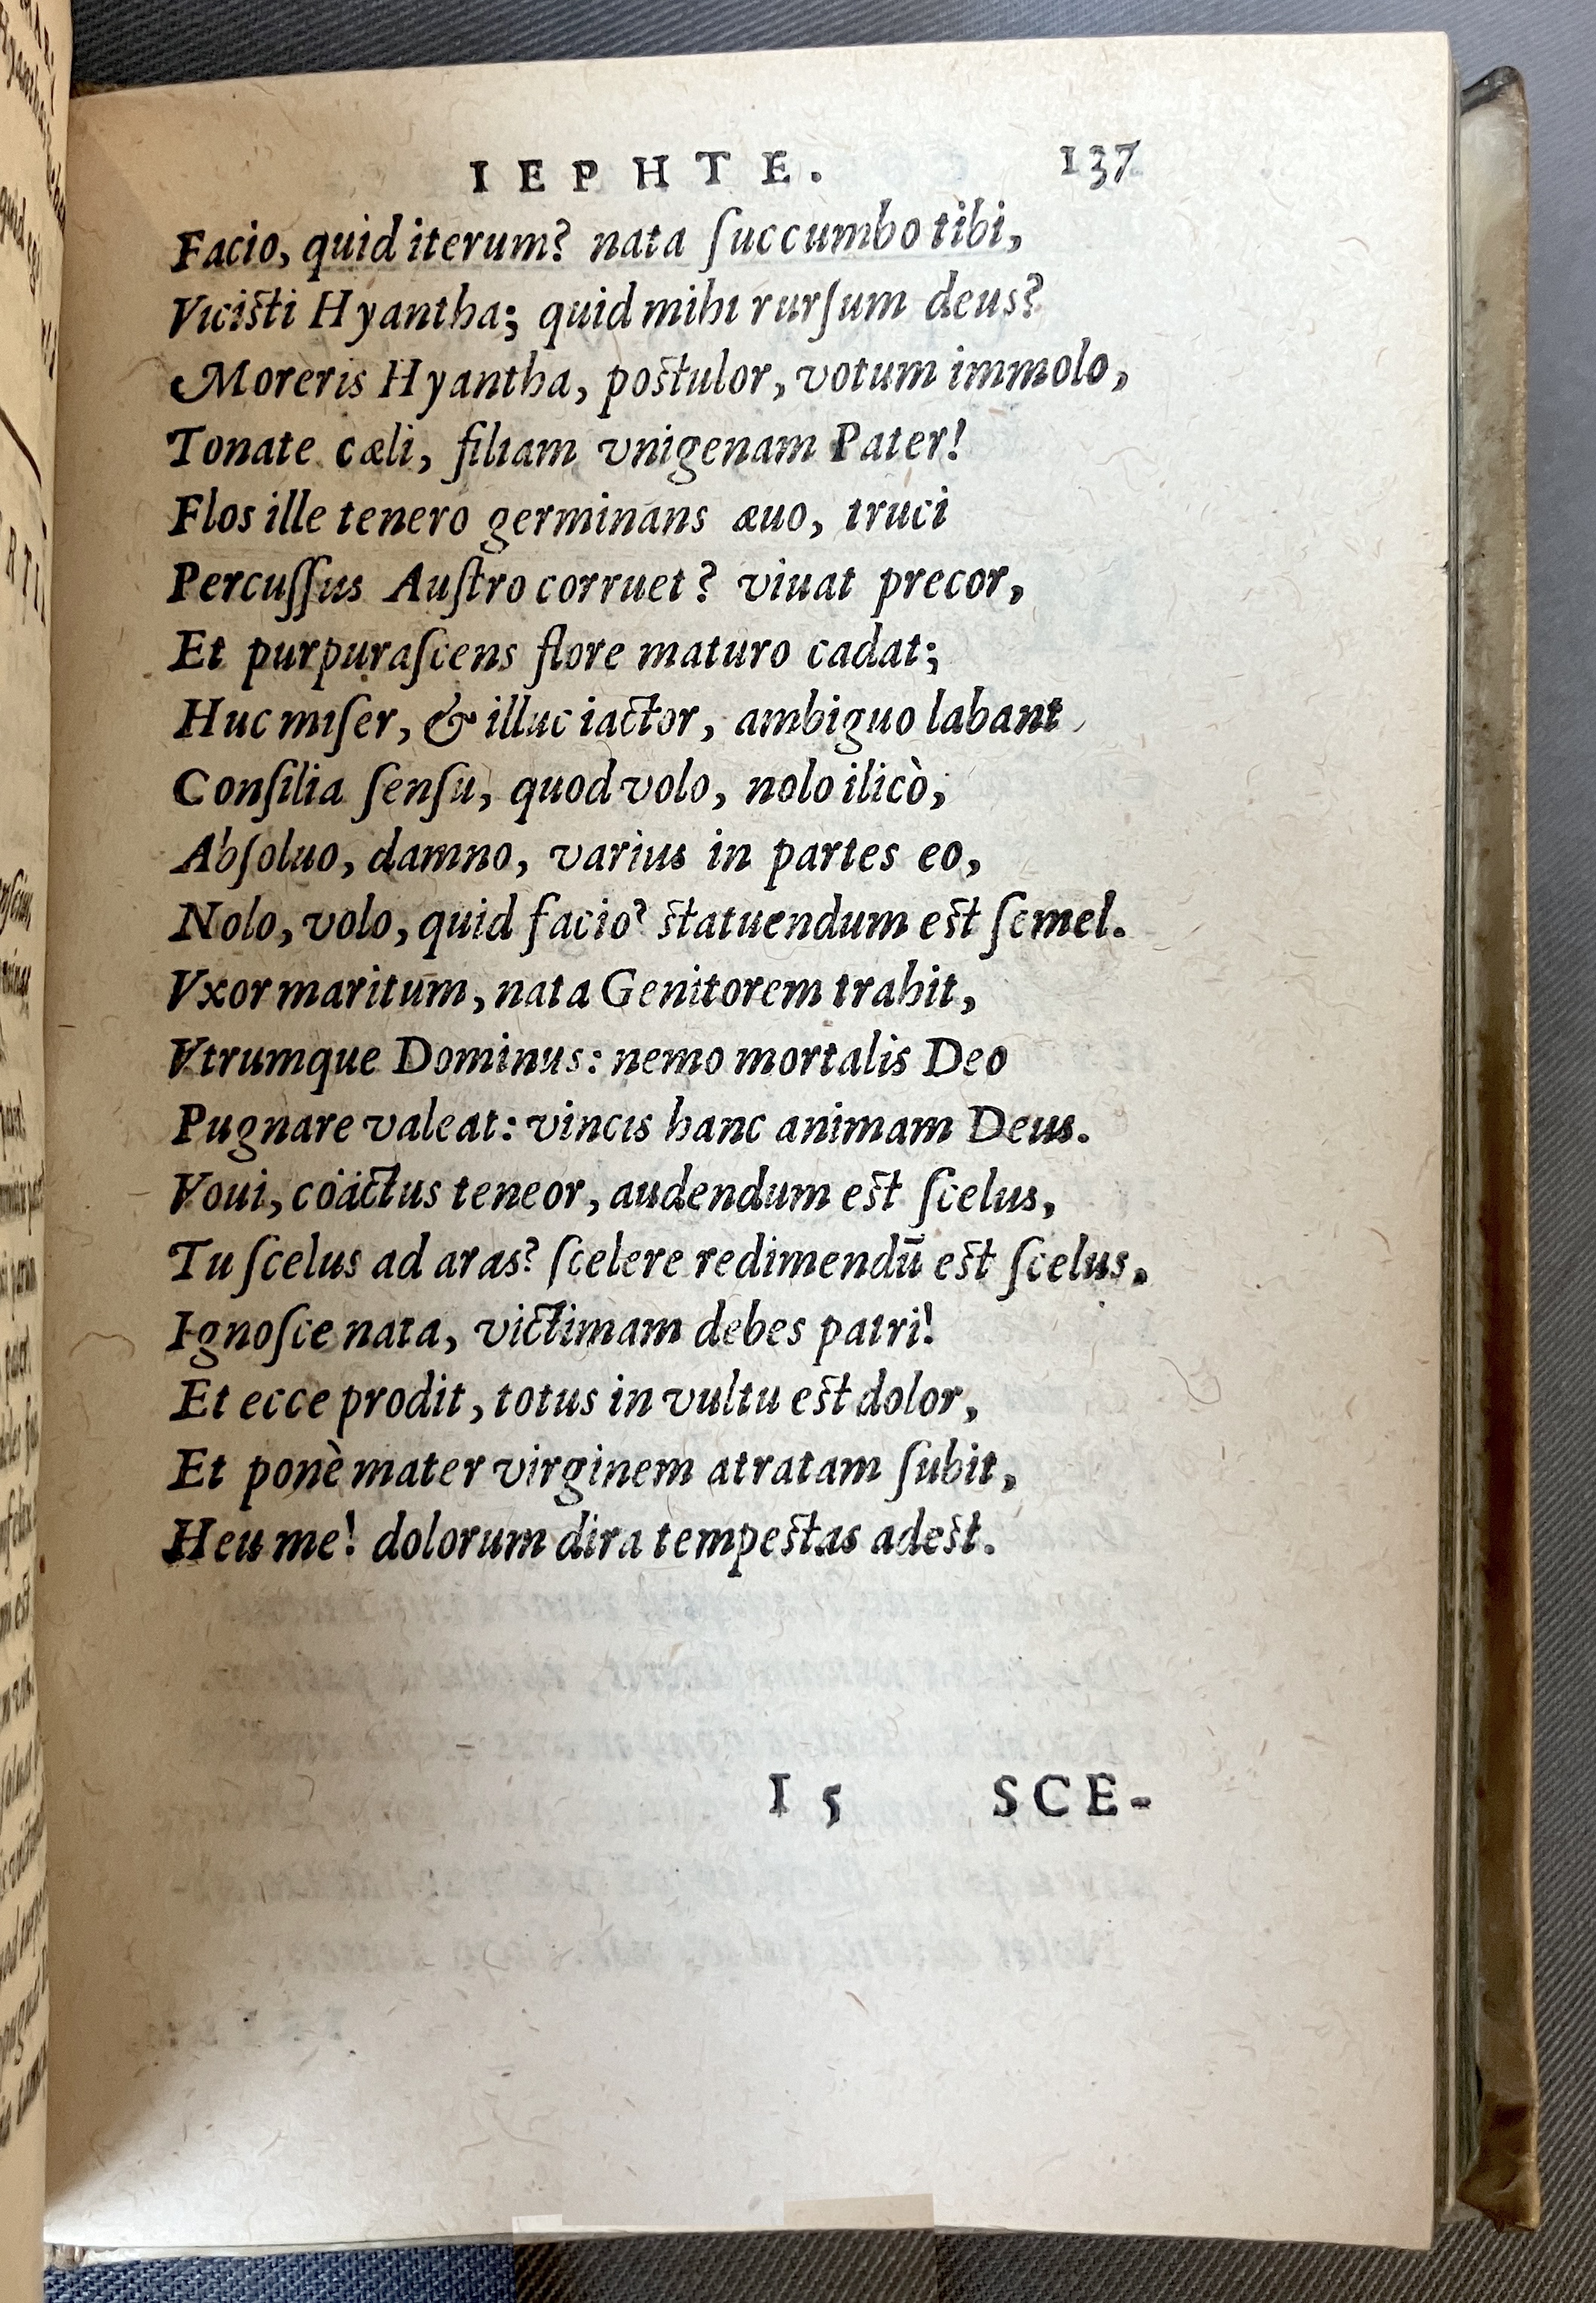 IEPHTE. 137
Facio, quid iterum? nata ſuccumbo tibi,
Viciſti Hyantha; quid mihi rurſum deus?
Moreris Hyantha, poſtulor, votum immolo,
Tonate cæli, filiam vnigenam Pater!
Flos ille tenero germinans æuo, truci
Percuſſus Auſtro corruet? viuat precor,
Et purpuraſcens flore maturo cadat;
Huc miſer, & illuc iactor, ambiguo labant
Conſilia ſenſu, quod volo, nolo ilicò,
Abſoluo, damno, varius in partes eo,
Nolo, volo, quid facio? ſtatuendum eſt ſemel.
Vxor maritum, nata Genitorem trahit,
Vtrumque Dominus: nemo mortalis Deo
Pugnare valeat: vincis hanc animam Deus.
Voui, cöäctus teneor, audendum eſt ſcelus,
Tu ſcelus ad aras? ſcelere redimendū eſt ſcelus.
Ignoſce nata, victimam debes patri!
Et ecce prodit, totus in vultu eſt dolor,
Et ponè mater virginem atratam ſubit,
Heu me! dolorum dira tempeſtas adeſt.
I 5 SCE-